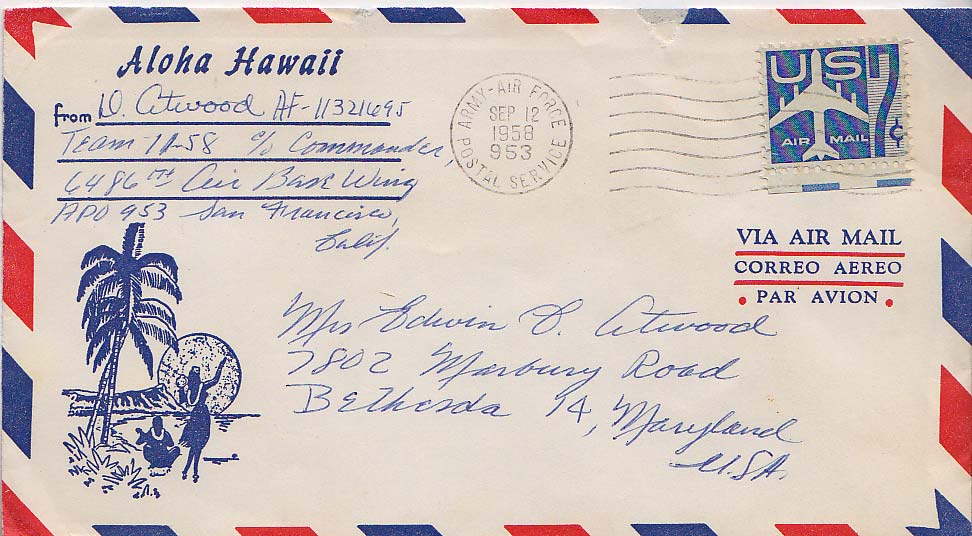 Aloha Hawaii
from D. Atwood AF-11321695
Team 7A-58 c/o Commander,
6486TH Air Base Wing
APO 953 San Francisco,
Calif.
ARMY-AIR FORCE
SEP 12
1958
953
POSTAL SERVICE
US
7¢
AIR MAIL
VIA AIR MAIL
CORREO AEREO
• PAR AVION •
Mrs Edwin S. Atwood
7802 Marbury Road
Bethesda 14, Maryland
U.S.A.